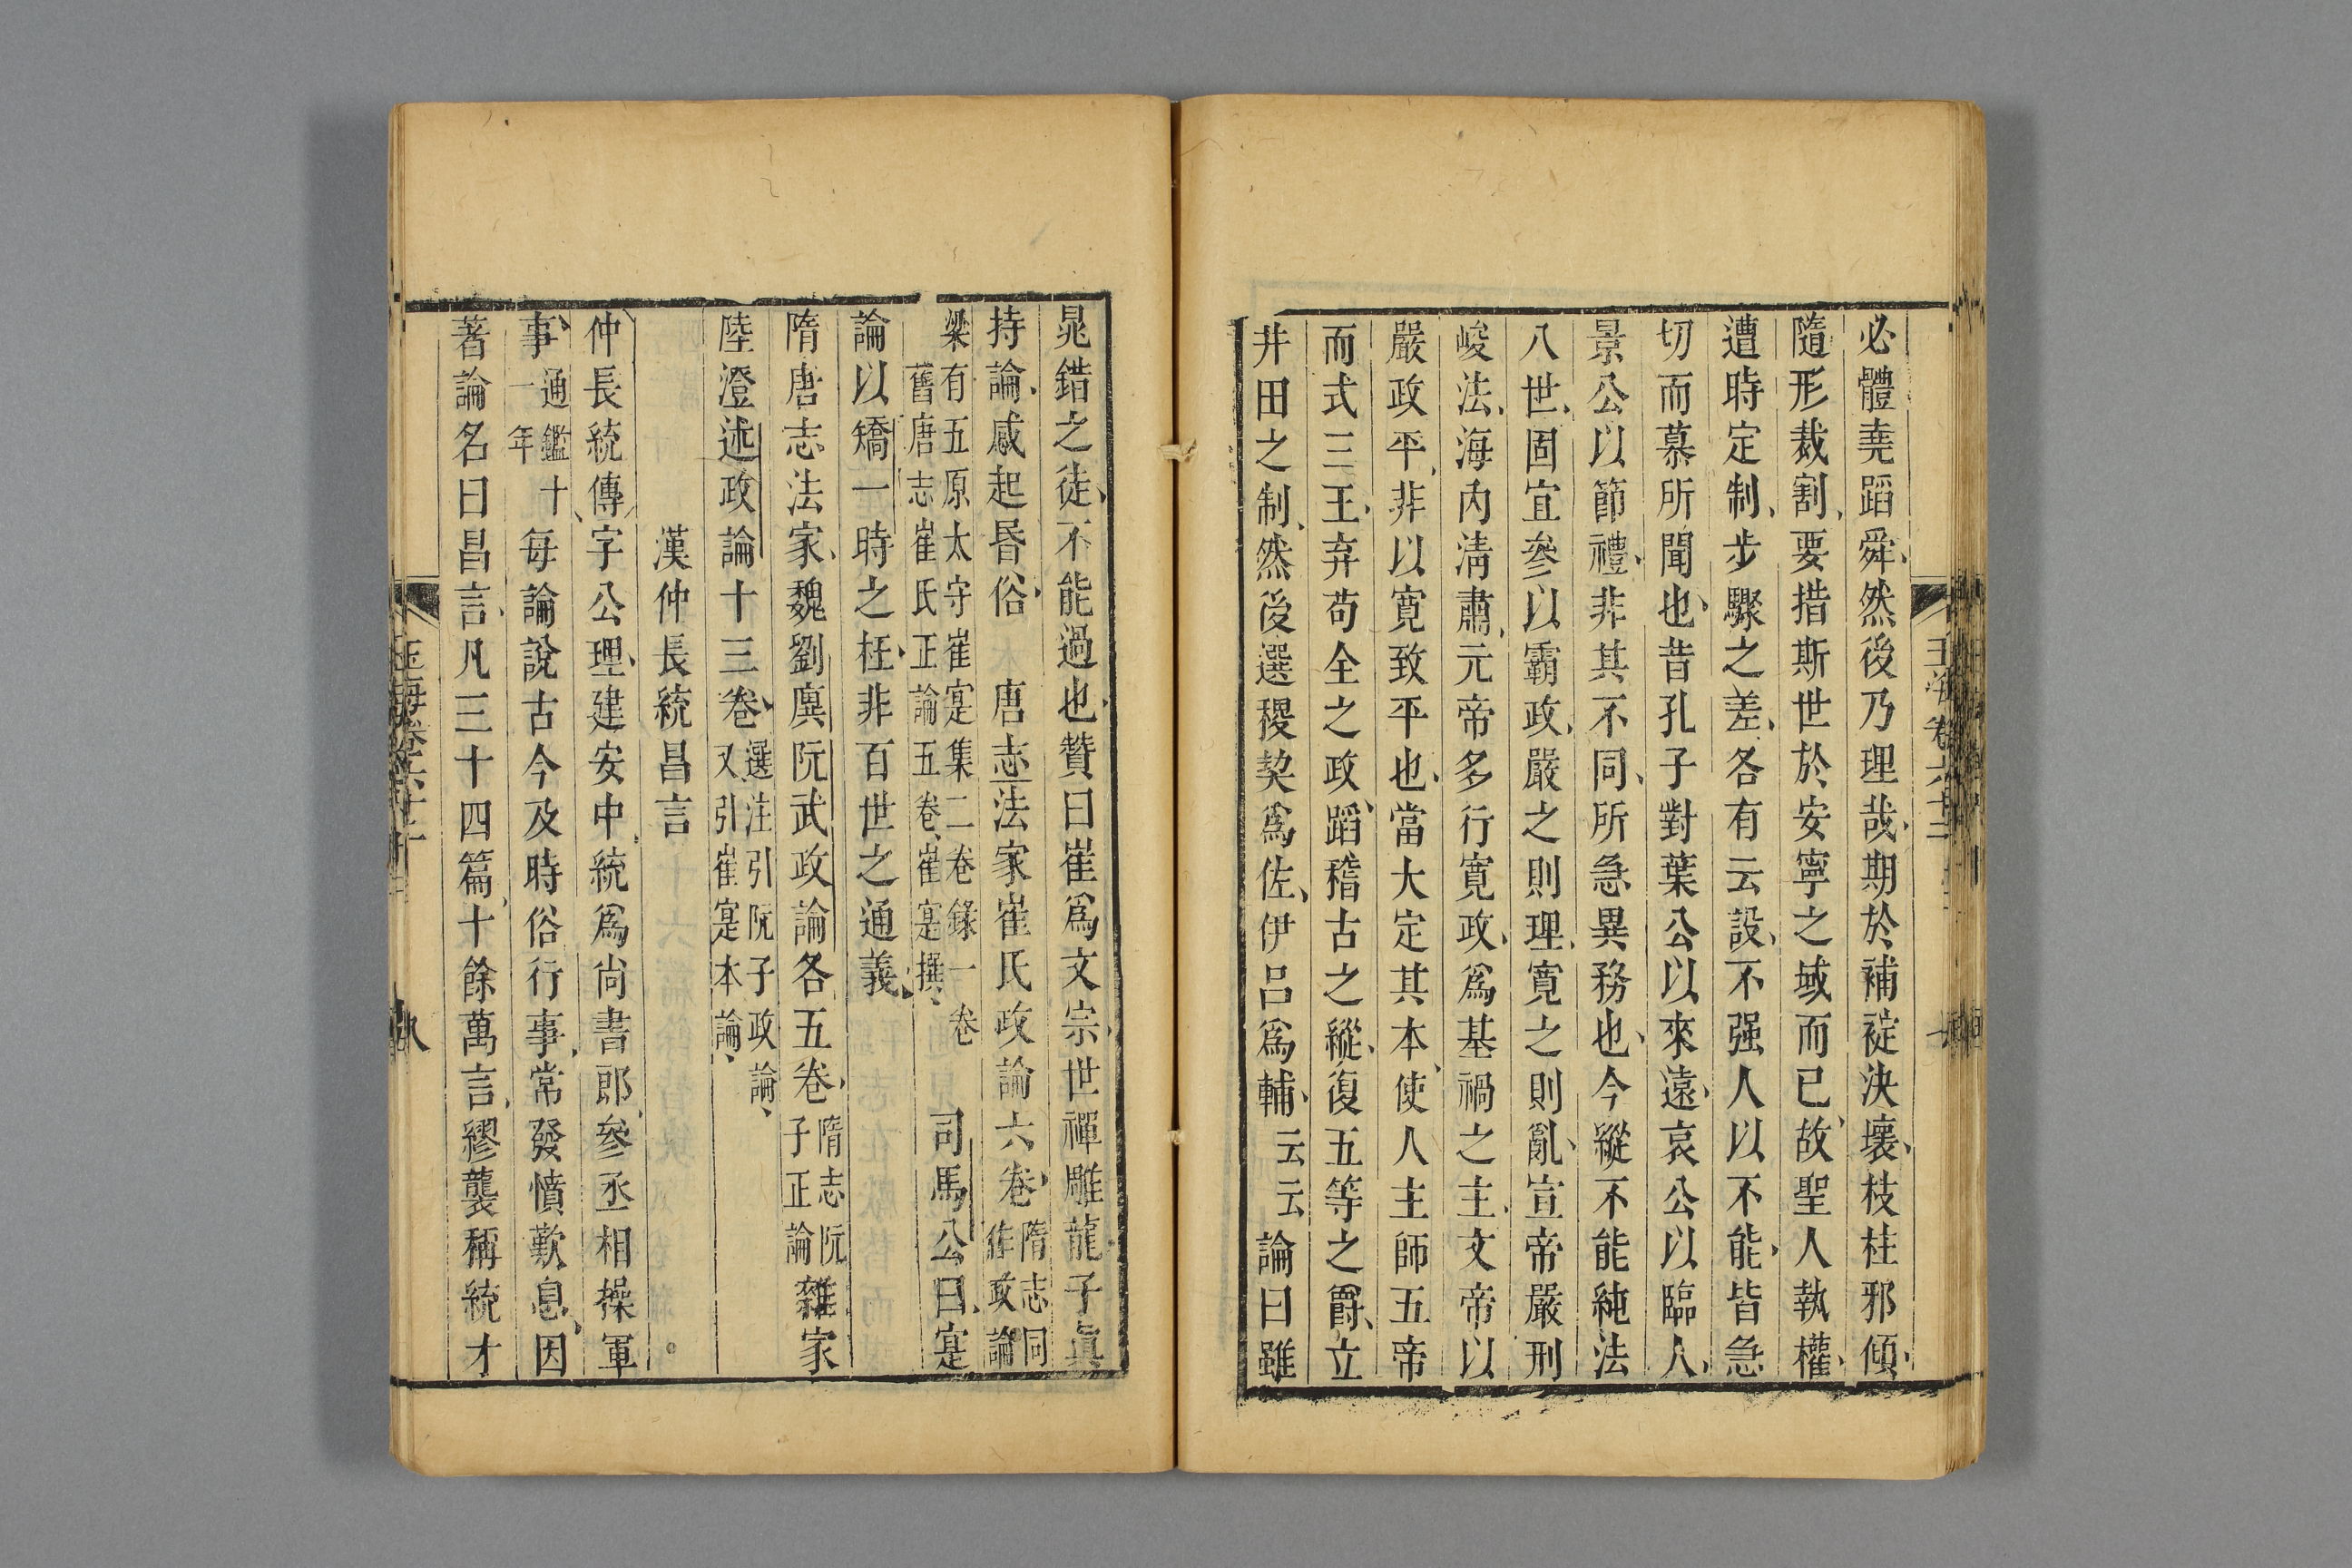 必體堯蹈舜、然後乃理哉、期於補䘺決壞、枝柱邪傾、
隨形裁割、要措斯世於安寧之域而已、故聖人執權、
遭時定制、步驟之差、各有云設、不强人以不能、皆急
切而慕所聞也、昔孔子對葉公以來遠、哀公以臨人、
景公以節禮、非其不同、所急異務也、今縱不能純法
八世、固宜參以霸政、嚴之則理、寬之則亂、宣帝嚴刑
峻法、海內清肅、元帝多行寬政、爲基禍之主、文帝以
嚴政平、非以寬致平也、當大定其本、使人主師五帝
而式三王、弃苟全之政、蹈稽古之縱、復五等之爵、立
井田之制、然後選稷契爲佐、伊呂爲輔、云云論曰雖
晁錯之徒、不能過也、贊曰崔爲文宗、世禪雕龍子眞
持論、感起昏俗、唐志法家崔氏政論六卷、隋志同
作政論
梁有五原太守崔寔集二卷錄一卷
舊唐志崔氏正論五卷、崔寔撰、
司馬公曰、寔
論以矯一時之枉、非百世之通義、
隋唐志法家、魏劉廙阮武政論各五卷、隋志阮
子正論
雜家
陸澄述政論十三卷、選注引阮子政論、
又引崔寔本論、
漢仲長統昌言
仲長統傳、字公理、建安中、統爲尚書郎、參丞相操軍
事、通鑑十
一年
每論說古今及時俗行事、常發憤歎息、因
著論名曰昌言、凡三十四篇、十餘萬言、繆襲稱統才